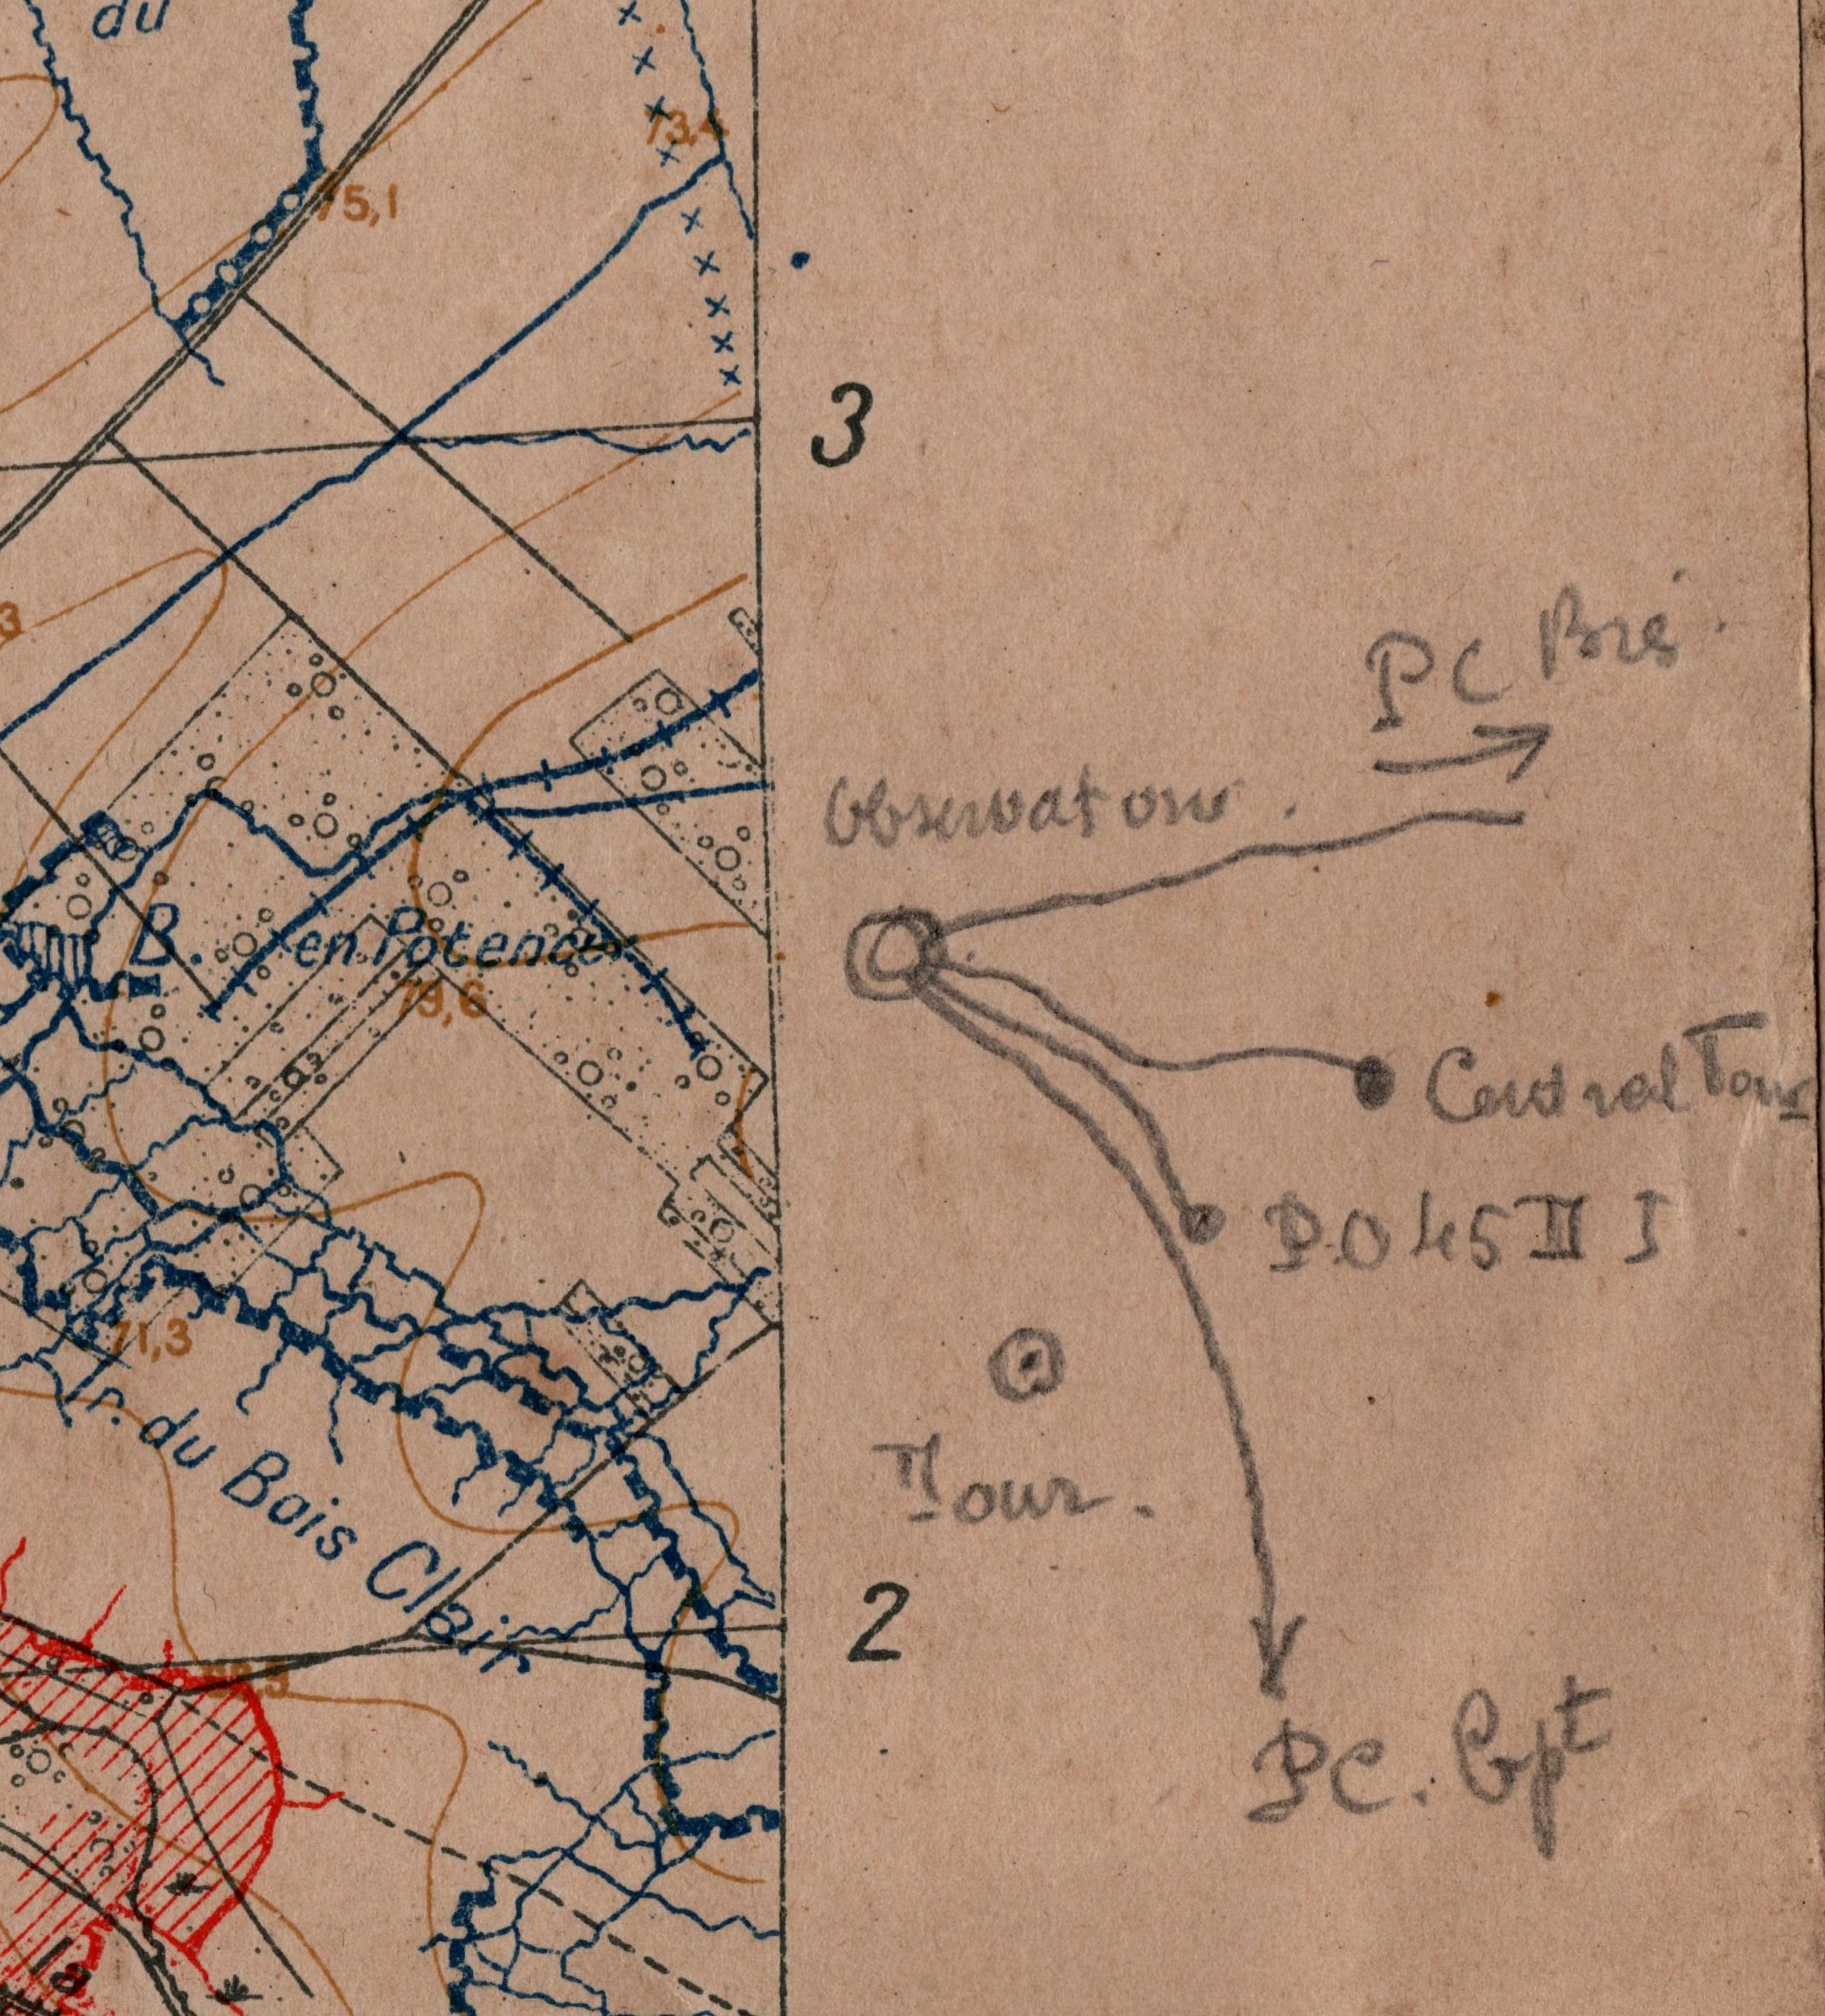 du
73,4
75,1
3
3
PC Bri
Observatoire.
B. en Potence
79,6
Central Tour
P.O 45 III I
71,3
Tr. du Bois Clair
Tour.
2
PC. Gpt
la